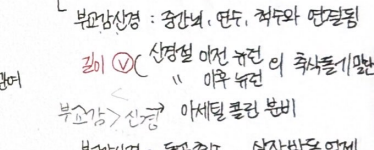 부교감신경 : 중간뇌, 연수, 척수와 연결됨
관여
길이 Ⓥ ( 신경절 이전 뉴런 의 축삭돌기말단
" 이후 뉴런
부교감 > 신경 → 아세틸콜린 분비